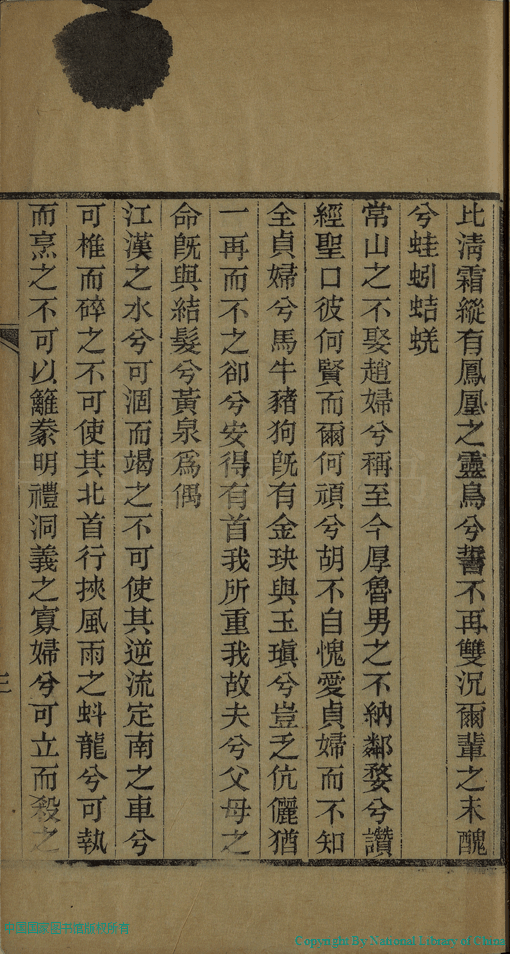 比淸霜縱有鳳凰之靈鳥兮誓不再雙況爾輩之末醜
兮蛙蚓蛣蜣
常山之不娶趙婦兮稱至今厚魯男之不納鄰婺兮讚
經聖口彼何賢而爾何頑兮胡不自愧愛貞婦而不知
全貞婦兮馬牛豬狗旣有金玦與玉瑱兮豈乏伉儷猶
一再而不之卻兮安得有首我所重我故夫兮父母之
命旣與結髮兮黃泉爲偶
江漢之水兮可涸而竭之不可使其逆流定南之車兮
可椎而碎之不可使其北首行挾風雨之蚪龍兮可執
而烹之不可以雞豢明禮洞義之寡婦兮可立而殺之
三
中国国家图书馆版权所有
Copyright By National Library of China